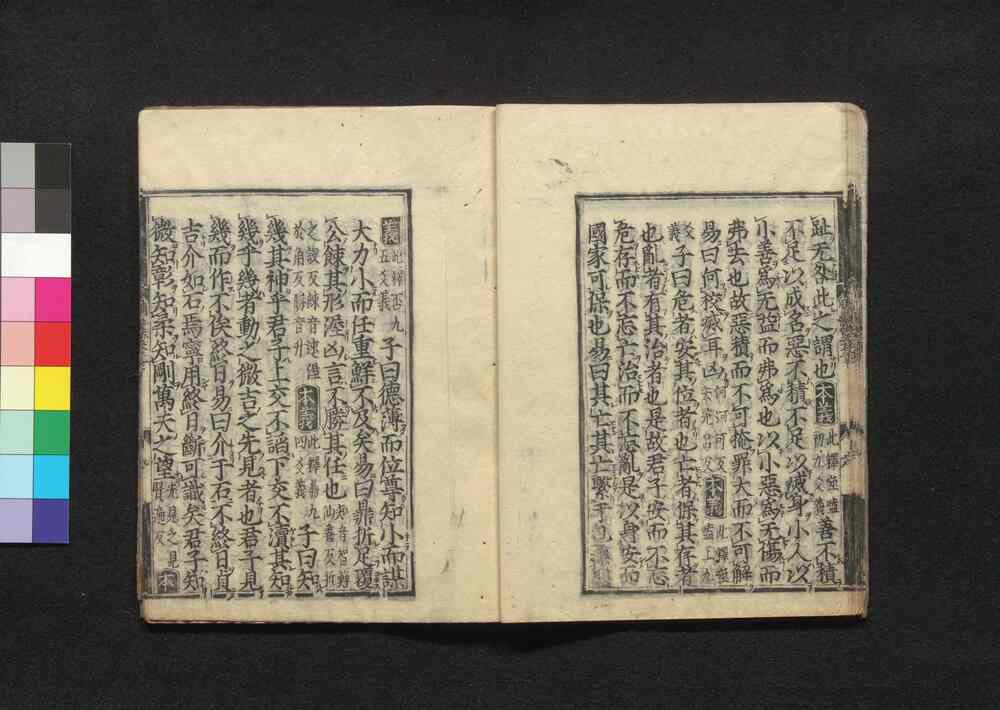 趾无咎此之謂也本義此釋噬嗑初九爻義善不積
不足以成名惡不積不足以滅身小人以
小善爲无益而弗爲也以小惡爲无傷而
弗去也故惡積而不可揜罪大而不可解
易曰何校滅耳凶何河可反去羌呂反本義此釋噬嗑上九
爻義子曰危者安其位者也亡者保其存者
也亂者有其治者也是故君子安而不忘
危存而不忘亡治而不忘亂是以身安而
國家可保也易曰其亡其亡繫于苞
義此釋否九五爻義子曰德薄而位尊知小而謀
大力小而任重鮮不及矣易曰鼎折足覆
公餗其形渥凶言不勝其任也知音智鮮仙善反折
之設反餗音速渥於角反勝音升本義此釋鼎九四爻義子曰知
幾其神乎君子上交不諂下交不瀆其知
幾乎幾者動之微吉之先見者也君子見
幾而作不俟終日易曰介于石不終日貞
吉介如石焉寧用終日斷可識矣君子知
微知彰知柔知剛萬夫之望先見之見賢遍反本